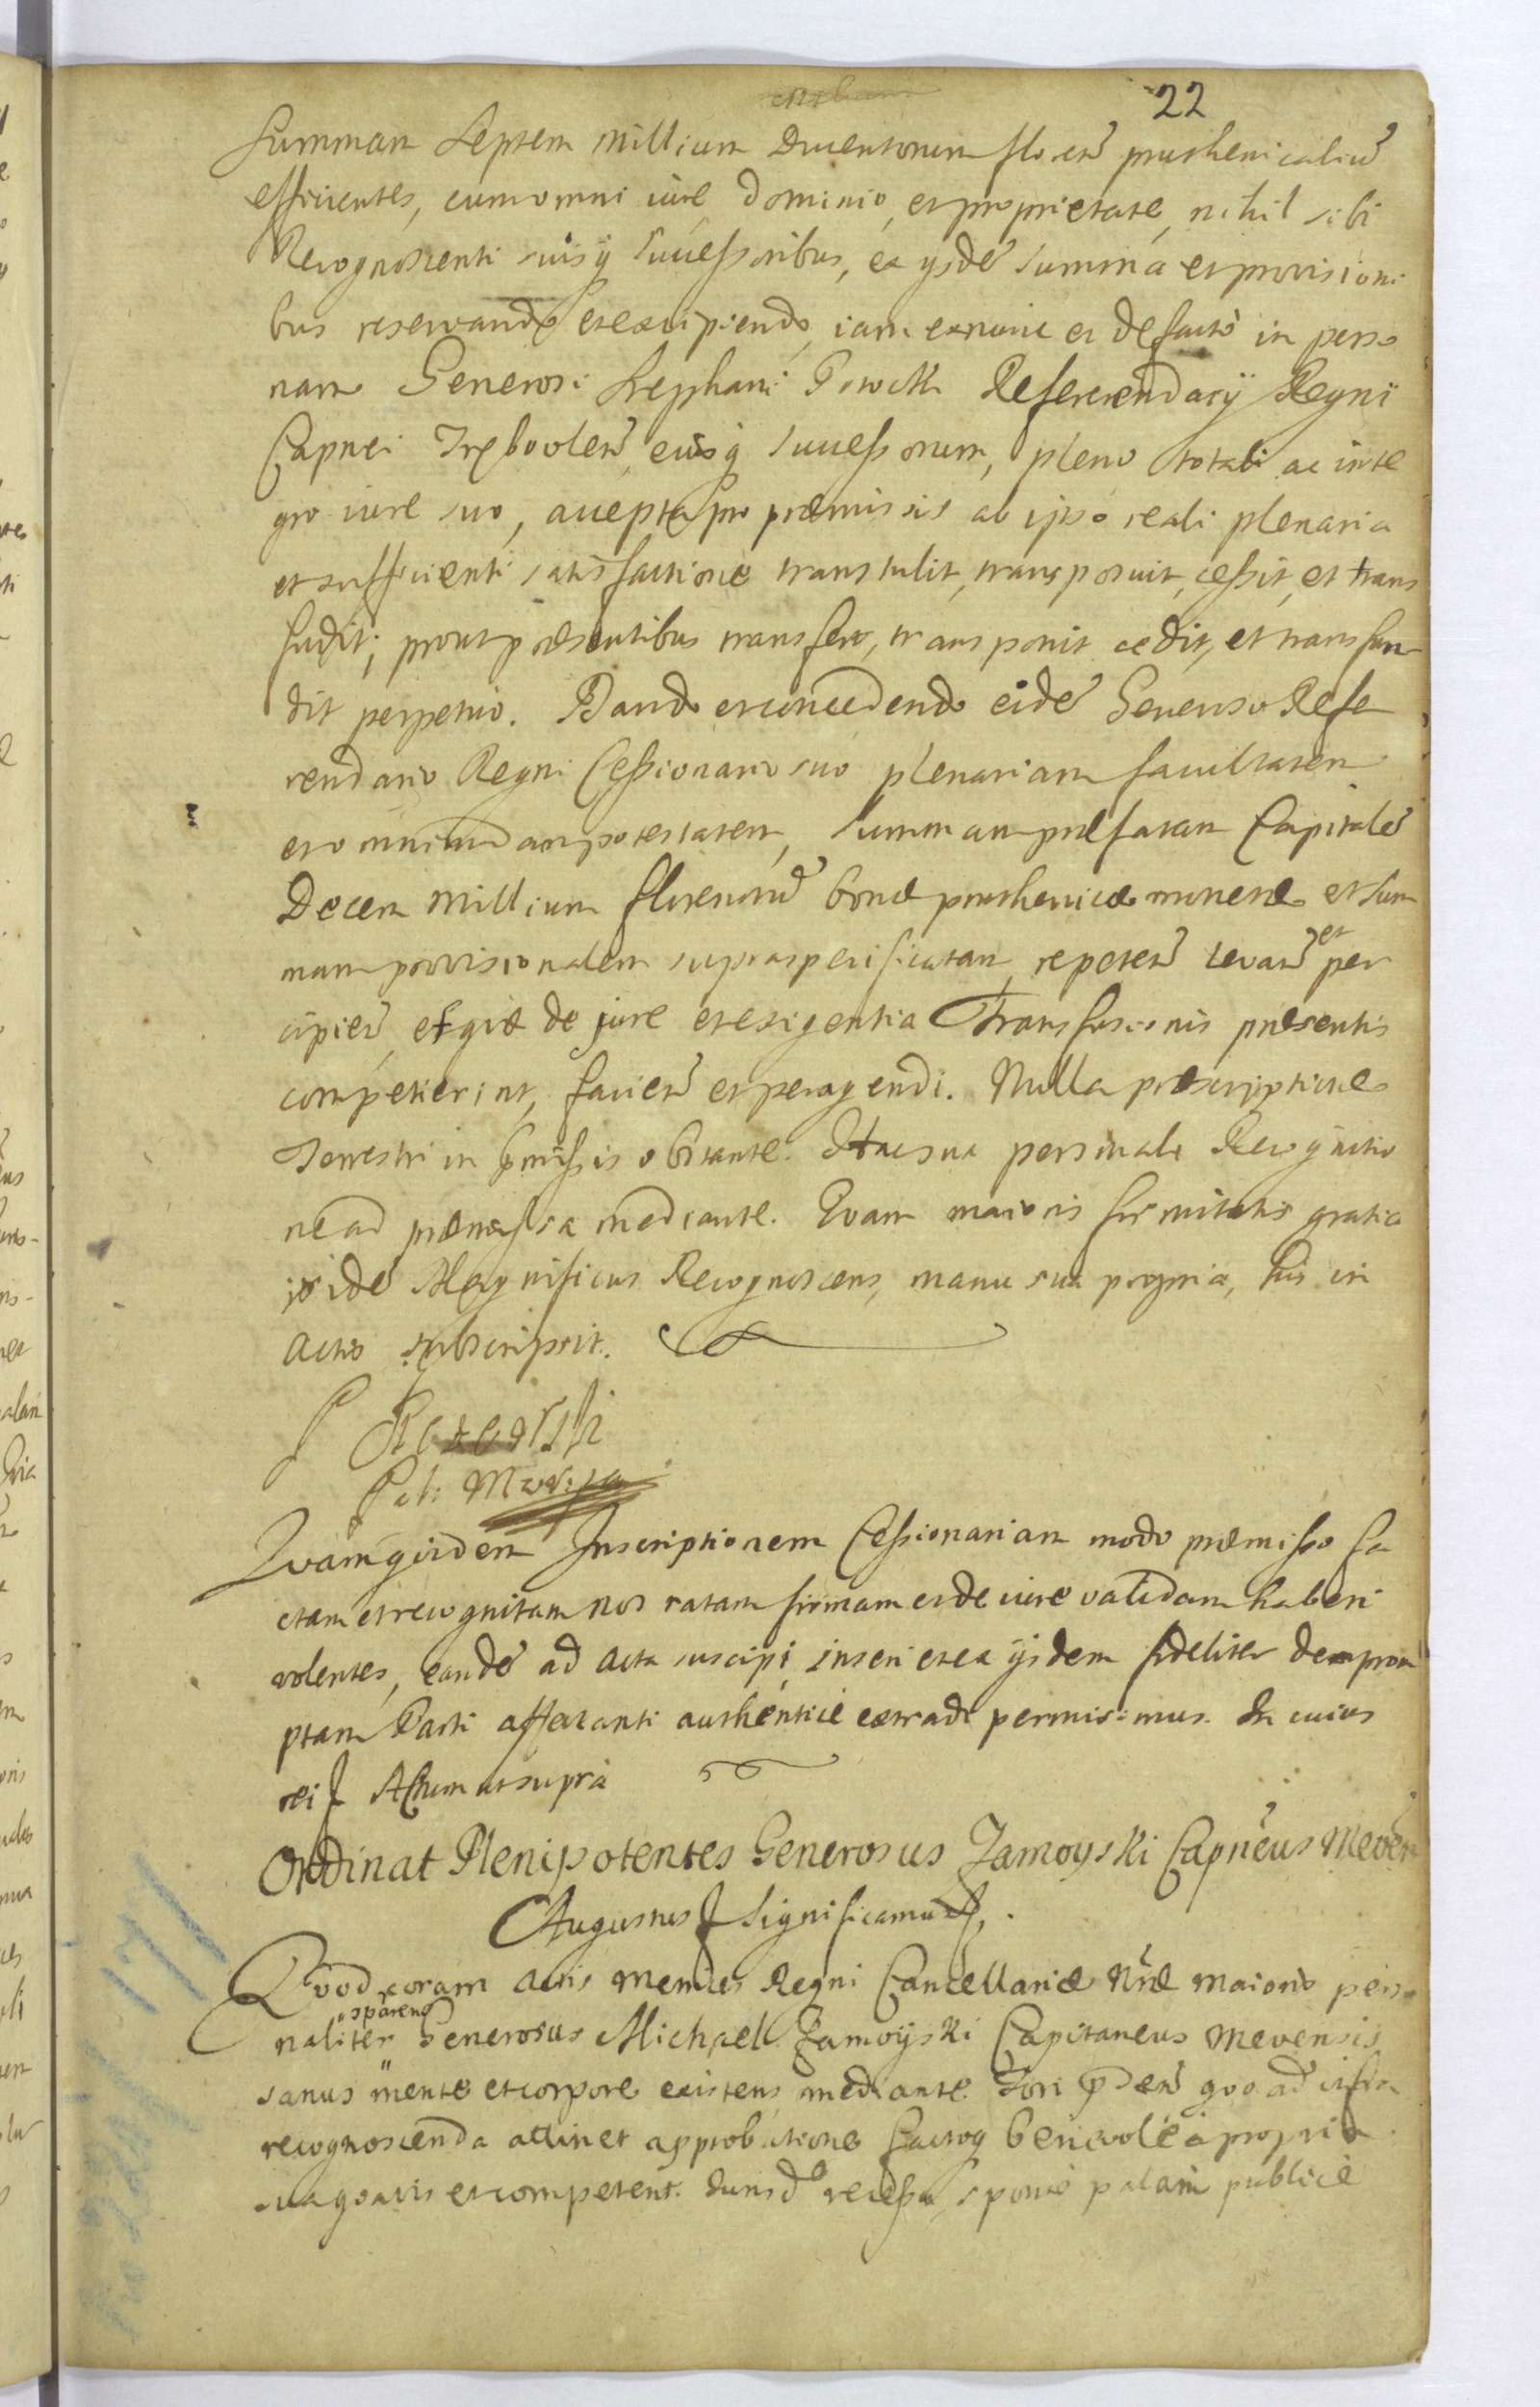 22
Summam Septem Millium Ducentorum floreñ pruthenicaliũ
efficientes, cum omni iure, dominio, et proprietate, nihil sibi
Recognoscenti suisq̃ Successoribus, ex ijsdẽ summa et provisioni
bus reservando et excipiendo, iam ex nunc et de facto in perso
nam Generosi Stephani Referendarij Regni
Capnei eiusq̃ Successorum, pleno totali ac inte
gro iure suo, accepta pro præmissis ab ipso reali plenaria
et sufficienti satisfactione transtulit, transposuit, cessit, et trans
fudit; prout præsentibus transfert, transponit cedit, et transfun
dit perpetuo. Dando et concedendo eidẽ Generoso Refe
rendario Regni Cessionario suo plenariam facultatem
et omnimodam potestatem, Summam præfatam Capitalẽ
Decem Millium florenorũ bonæ pruthenicæ monetæ et Sum
mam provisionalem supraspecificatam repeteñ levañ et per
cipieñ et quæ de jure et exigentia Transfusionis præsentis
competierint, facieñ et peragendi. Nulla præscriptione
Terrestri in p̃missis obstante. Hac sua personali Recognitio
ne ad præmissa mediante. Quam maioris firmitatis gratia
idẽ Magnificus Recognoscens, manu sua propria, his in
Actis subscripsit.
P
Quam quidem Inscriptionem Cessionariam modo præmisso fa
ctam et recognitam nos ratam firmam et de iure validam haberi
volentes, eandẽ ad Acta suscipi, inseri et ex ijsdem fideliter deprom
ptam Parti affectanti authenticè extradi permisimus. In cuius
rei Actum ut supra
Ordinat Plenipotentes Generosus Zamoyski Capneus Meveñ
Augustus Significamus
Quod coram Actis Metrices Regni Cancellariæ Nr̃æ Maioris perso
naliter cõpareñs Generosus Michael Zamoyski Capitaneus Mevensis
sanus mente et corpore existens, mediante fori quo ad infra
recognoscenda attinet approbatione factoq̃ benevole à proprio
suaq̃ avis et competent. Jurisdẽ recessu, sponte palam publicè